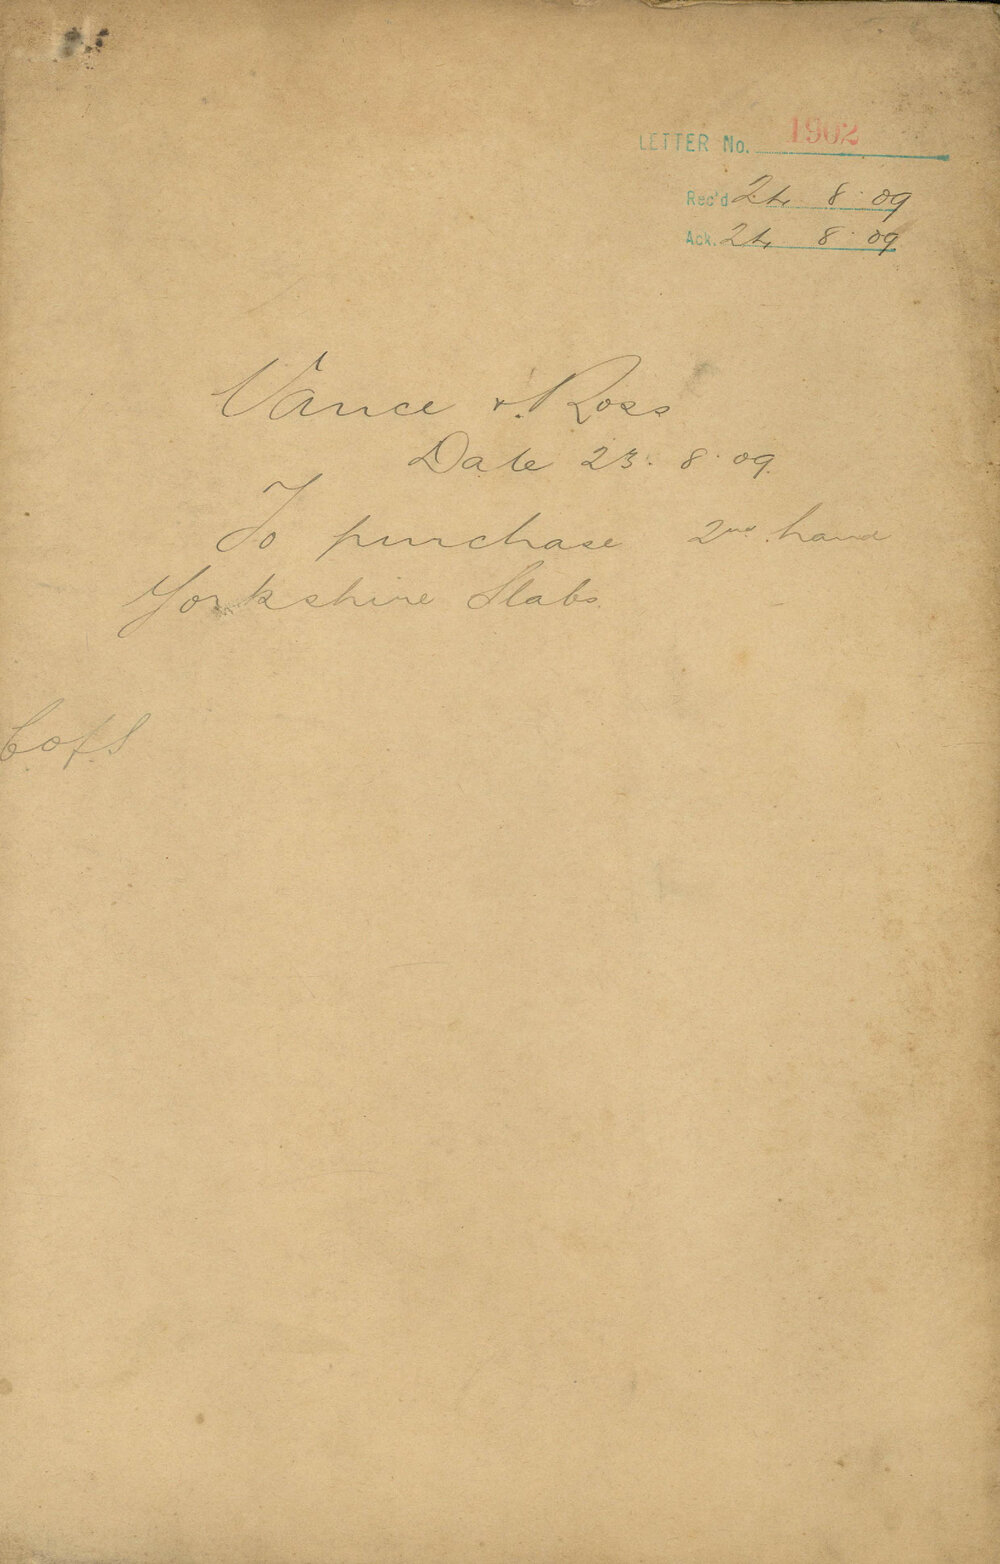 LETTER No. 1902
Rec'd 24. 8. 09
Ack. 24. 8. 09
Vance & Ross
Date 23. 8. 09.
To purchase 2nd hand
Yorkshire Slabs.
C. of S